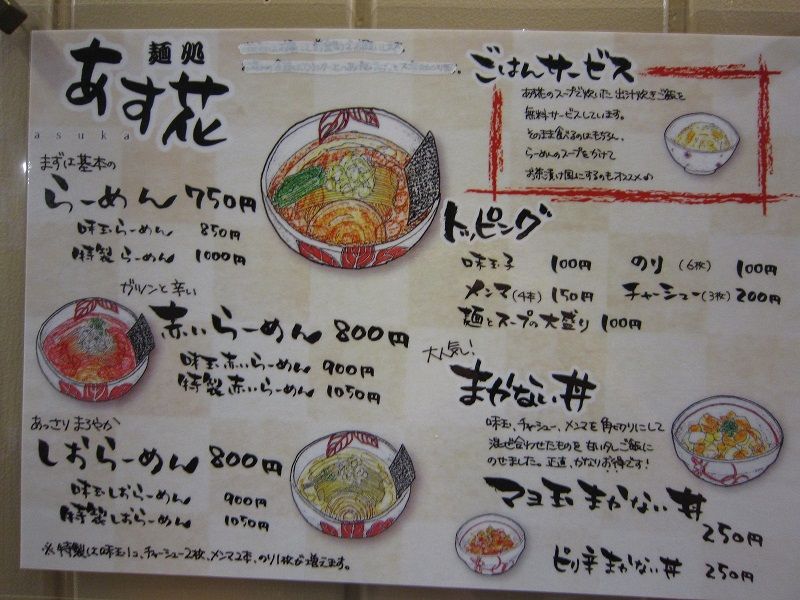 麺処
あす花
asuka
まずは基本の
らーめん 750円
味玉らーめん 850円
特製らーめん 1000円
ガツンと辛い
赤いらーめん 800円
味玉赤いらーめん 900円
特製赤いらーめん 1050円
あっさりまろやか
しおらーめん 800円
味玉しおらーめん 900円
特製しおらーめん 1050円
※特製は味玉1コ、チャーシュー2枚、メンマ2本、のり1枚が増えます。
ごはんサービス
あす花のスープで炊いた出汁炊きご飯を
無料サービスしています。
そのまま食べるのはもちろん、
らーめんのスープをかけて
お茶漬け風にするのもオススメ♪
トッピング
味玉子 100円 のり(6枚) 100円
メンマ(4本) 150円 チャーシュー(3枚) 200円
麺とスープの大盛り 100円
大人気!
まかない丼
味玉、チャーシュー、メンマを角切りにして
混ぜ合わせたものを甘いダレご飯に
のせました。正直、かなりお得です!
マヨ玉まかない丼
250円
ピリ辛まかない丼 250円